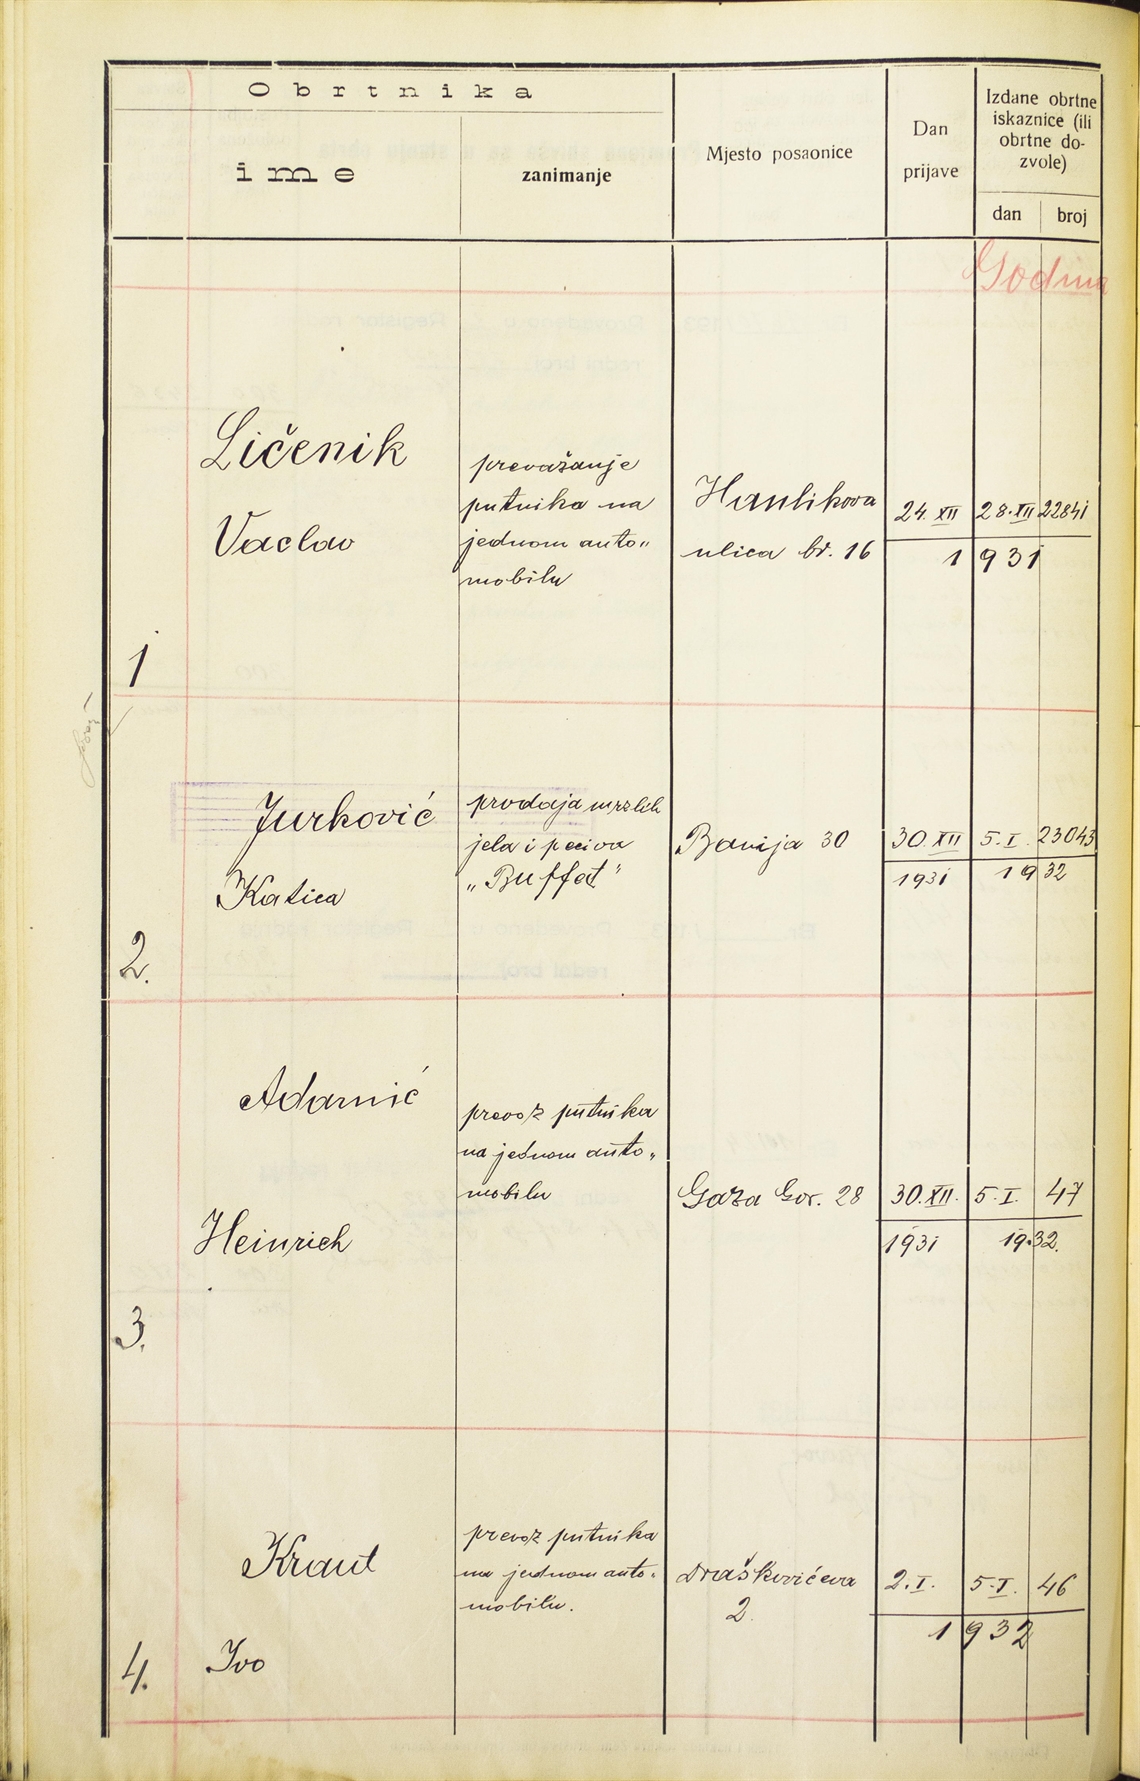 Obrtnika
ime
zanimanje
Mjesto posaonice
Dan
prijave
Izdane obrtne
iskaznice (ili
obrtne do-
zvole)
dan
broj
Godina
1
Ličenik
Vaclav
prevažanje
putnika na
jednom auto„
mobilu
Haulikova
ulica br. 16
24. XII 28. XII 22841
1931
2.
Jurković
Katica
prodaja mrzlih
jela i peciva
„Buffet"
Banija 30
30. XII
1931
5. I. 23043
1932
3.
Adamić
Heinrich
prevoz putnika
na jednom auto„
mobilu
Gaza Gor. 28
30. XII.
1931
5. I. 47
1932.
4.
Kraut
Ivo
prevoz putnika
na jednom auto-
mobilu.
Draškovićeva
2.
2. I. 5. I. 46
1932